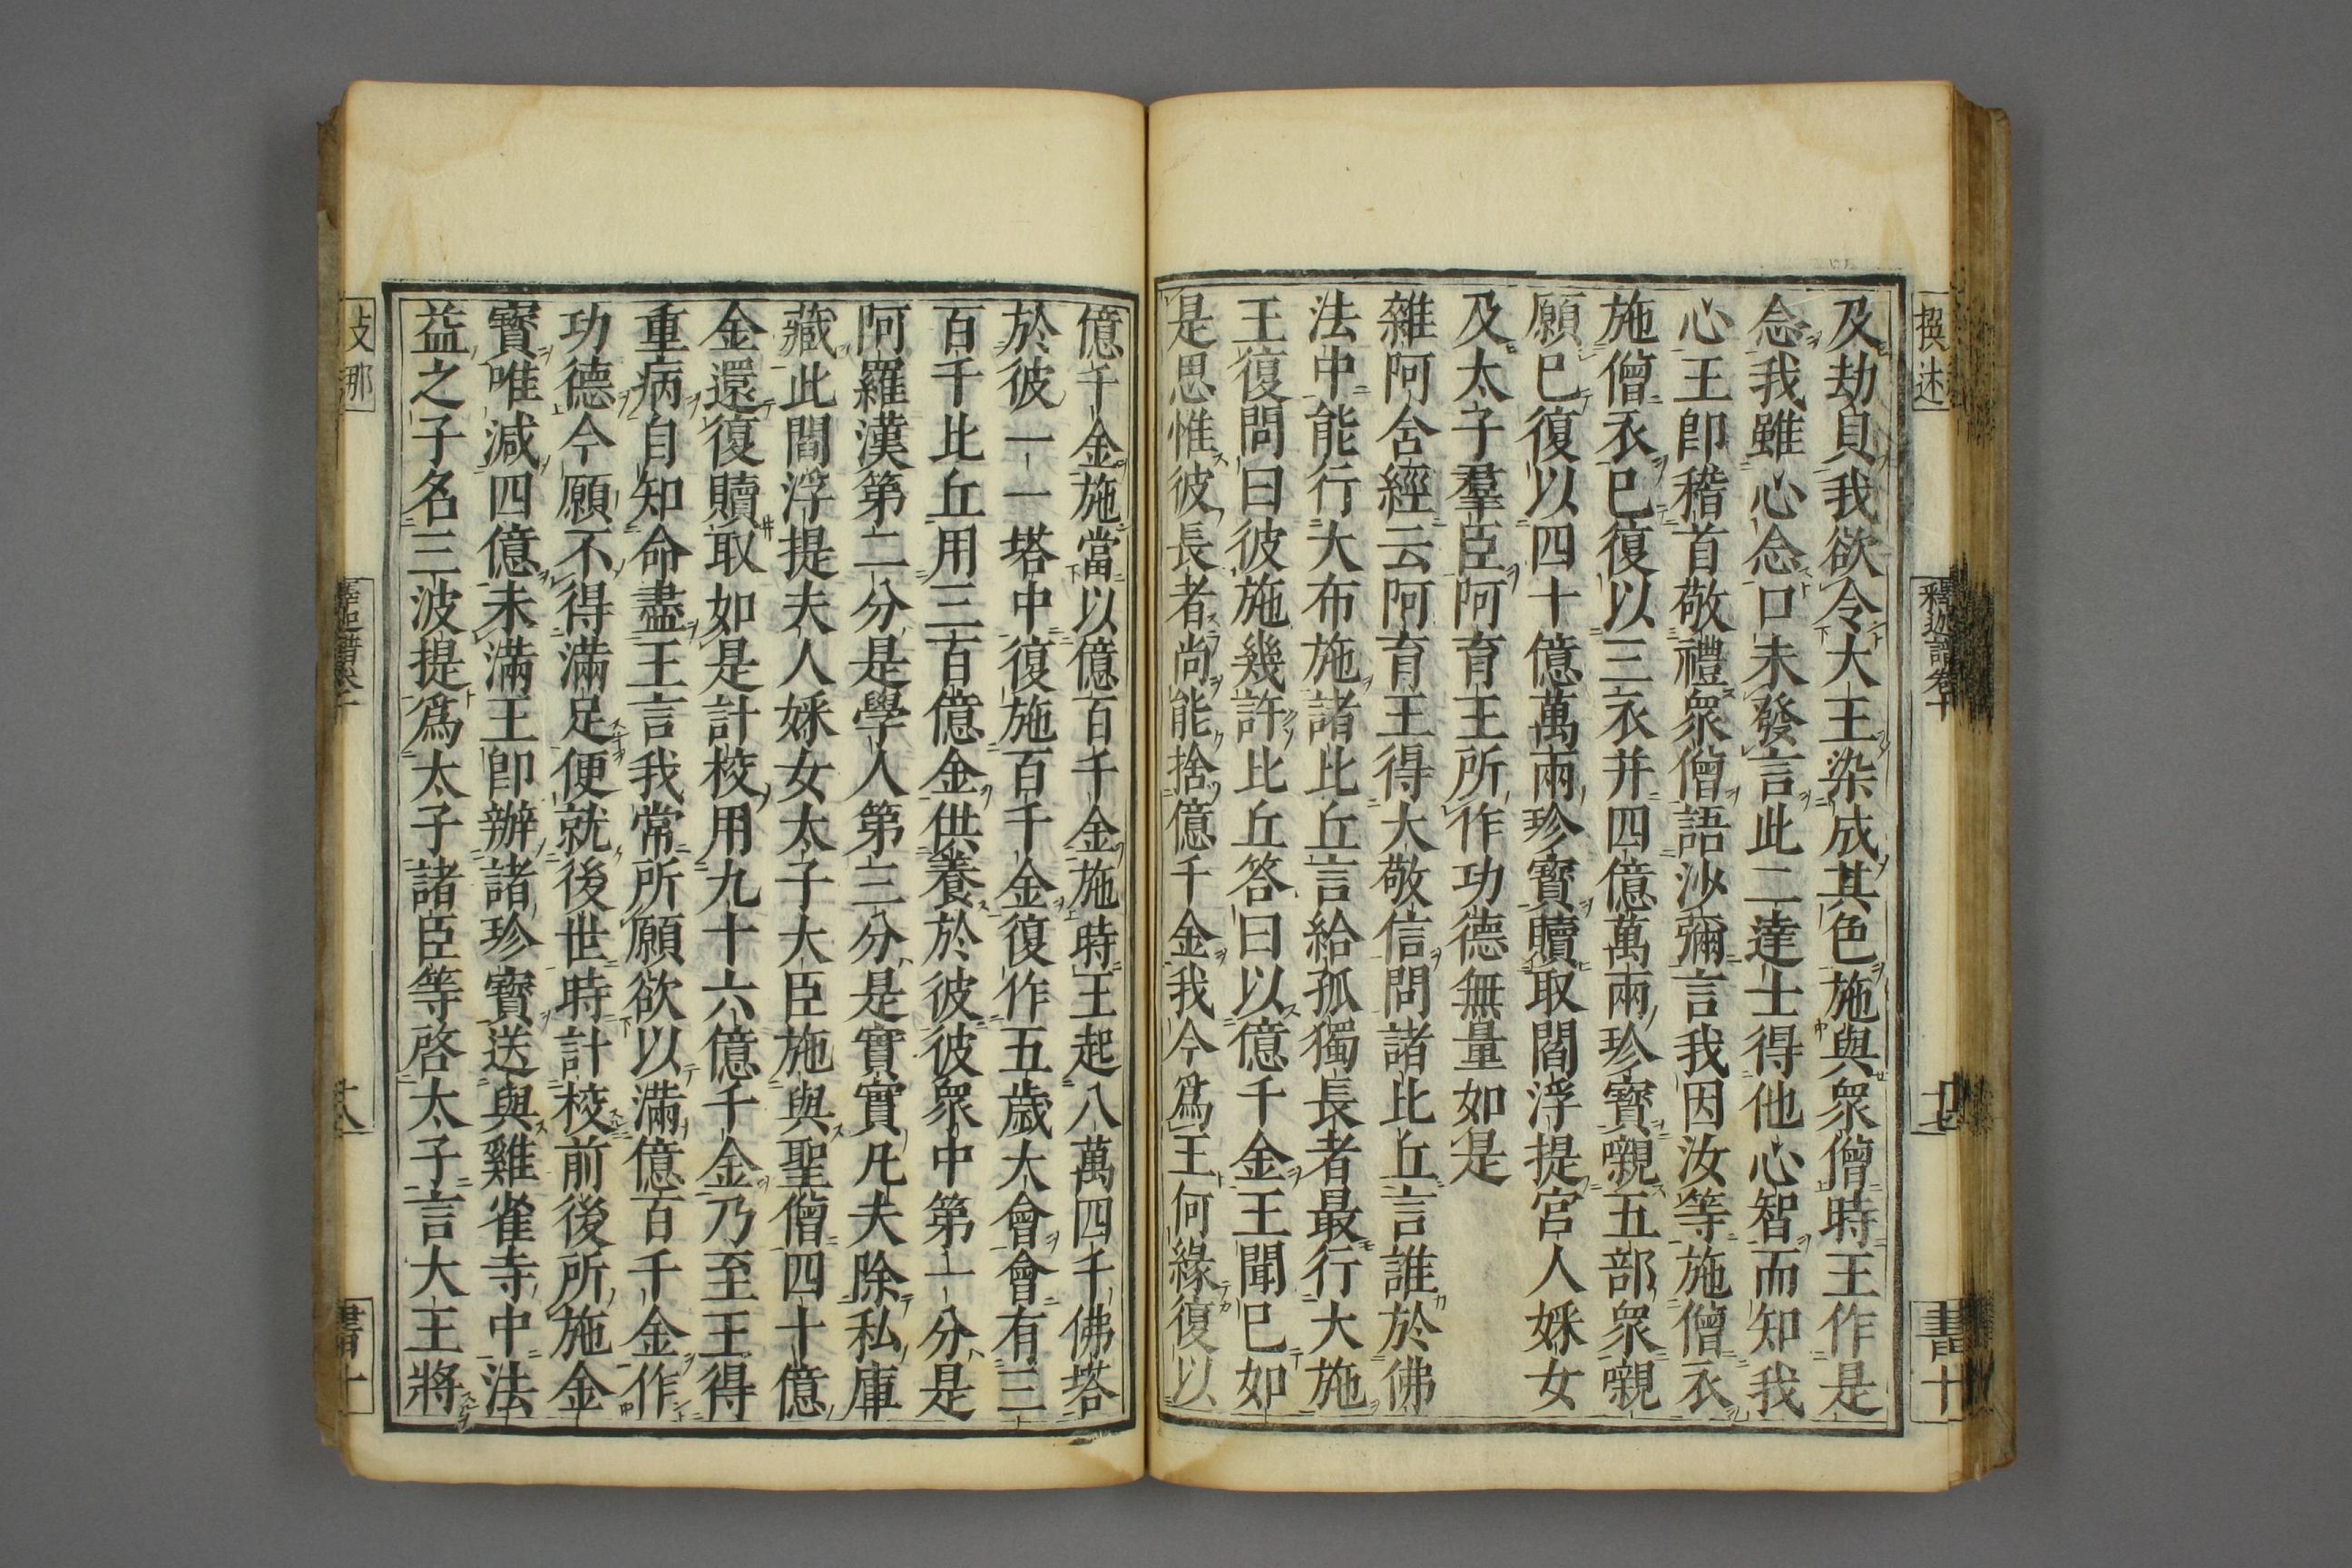 撰述
釋迦譜卷十
十七
書十
及劫貝我欲令大王染成其色施與衆僧時王作是
念我雖心念口未發言此二達士得他心智而知我
心王即稽首敬禮衆僧語沙彌言我因汝等施僧衣
施僧衣已復以三衣并四億萬兩珍寶嚫五部衆嚫
願已復以四十億萬兩珍寶贖取閻浮提宮人婇女
及太子羣臣阿育王所作功德無量如是
雜阿含經云阿育王得大敬信問諸比丘言誰於佛
法中能行大布施諸比丘言給孤獨長者最行大施
王復問曰彼施幾許比丘答曰以億千金王聞已如
是思惟彼長者尚能捨億千金我今爲王何緣復以
億千金施當以億百千金施時王起八萬四千佛塔
於彼一一塔中復施百千金復作五歲大會會有三
百千比丘用三百億金供養於彼彼衆中第一分是
阿羅漢第二分是學人第三分是實實凡夫除私庫
藏此閻浮提夫人婇女太子大臣施與聖僧四十億
金還復贖取如是計校用九十六億千金乃至王得
重病自知命盡王言我常所願欲以滿億百千金作
功德今願不得滿足便就後世時計校前後所施金
寶唯減四億未滿王即辦諸珍寶送與雞雀寺中法
益之子名三波提爲太子諸臣等啓太子言大王將
支那
十八
書十